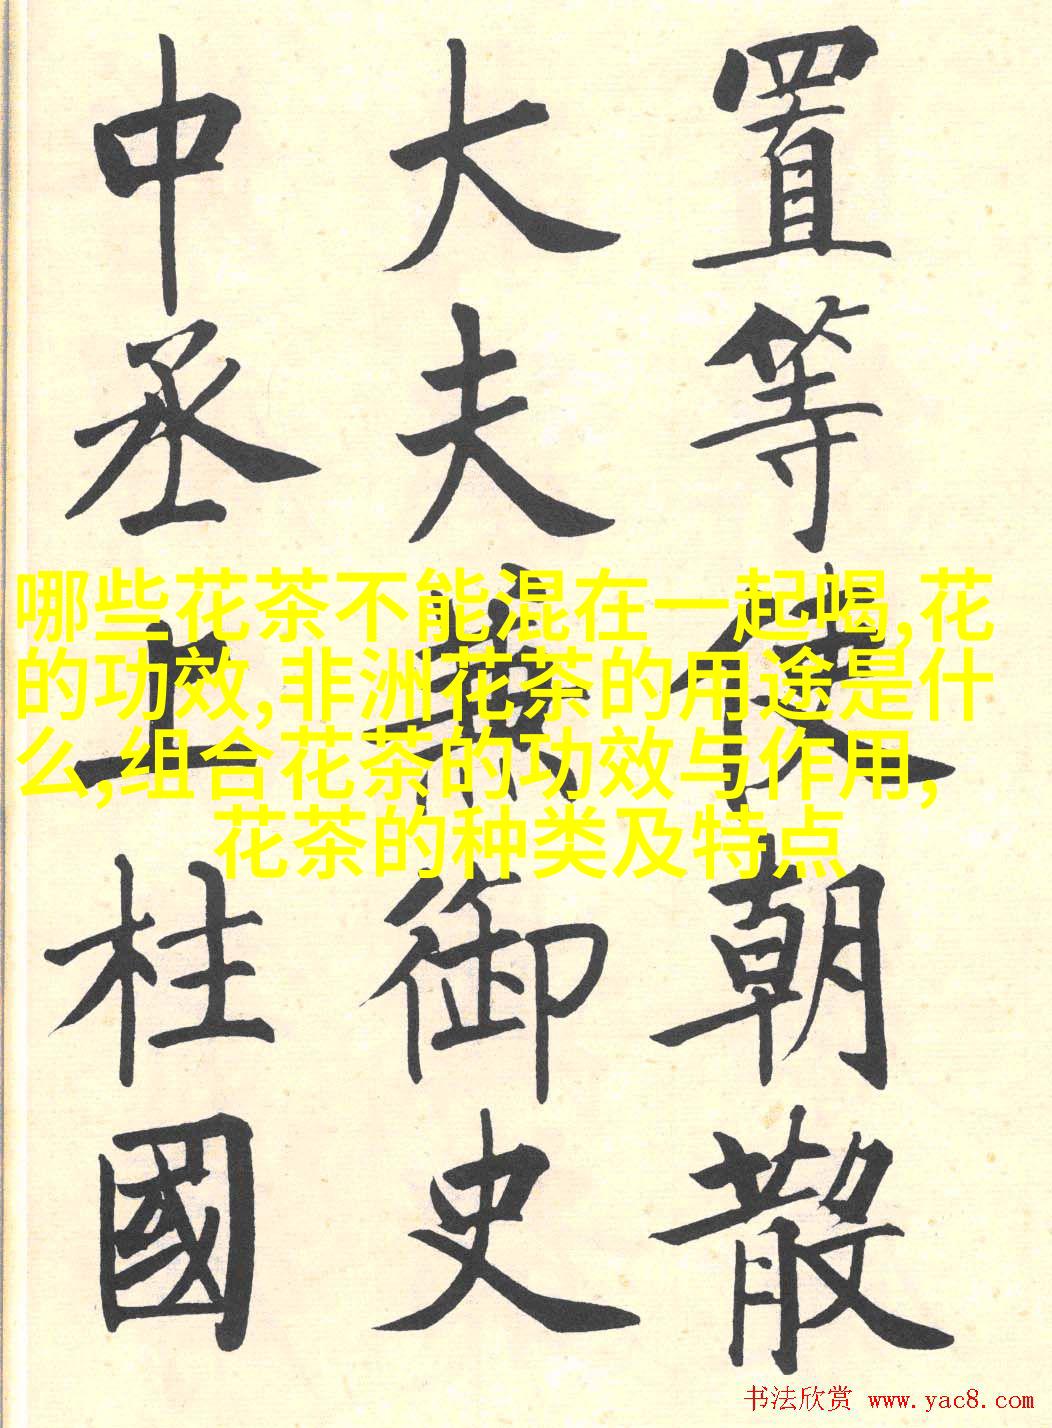 置等使朝散
大夫兼御史
中丞上柱國
哪些花茶不能混在一起喝,花
的功效,非洲花茶的用途是什
么,组合花茶的功效与作用,
花茶的种类及特点
书法欣赏 www.yac8.com